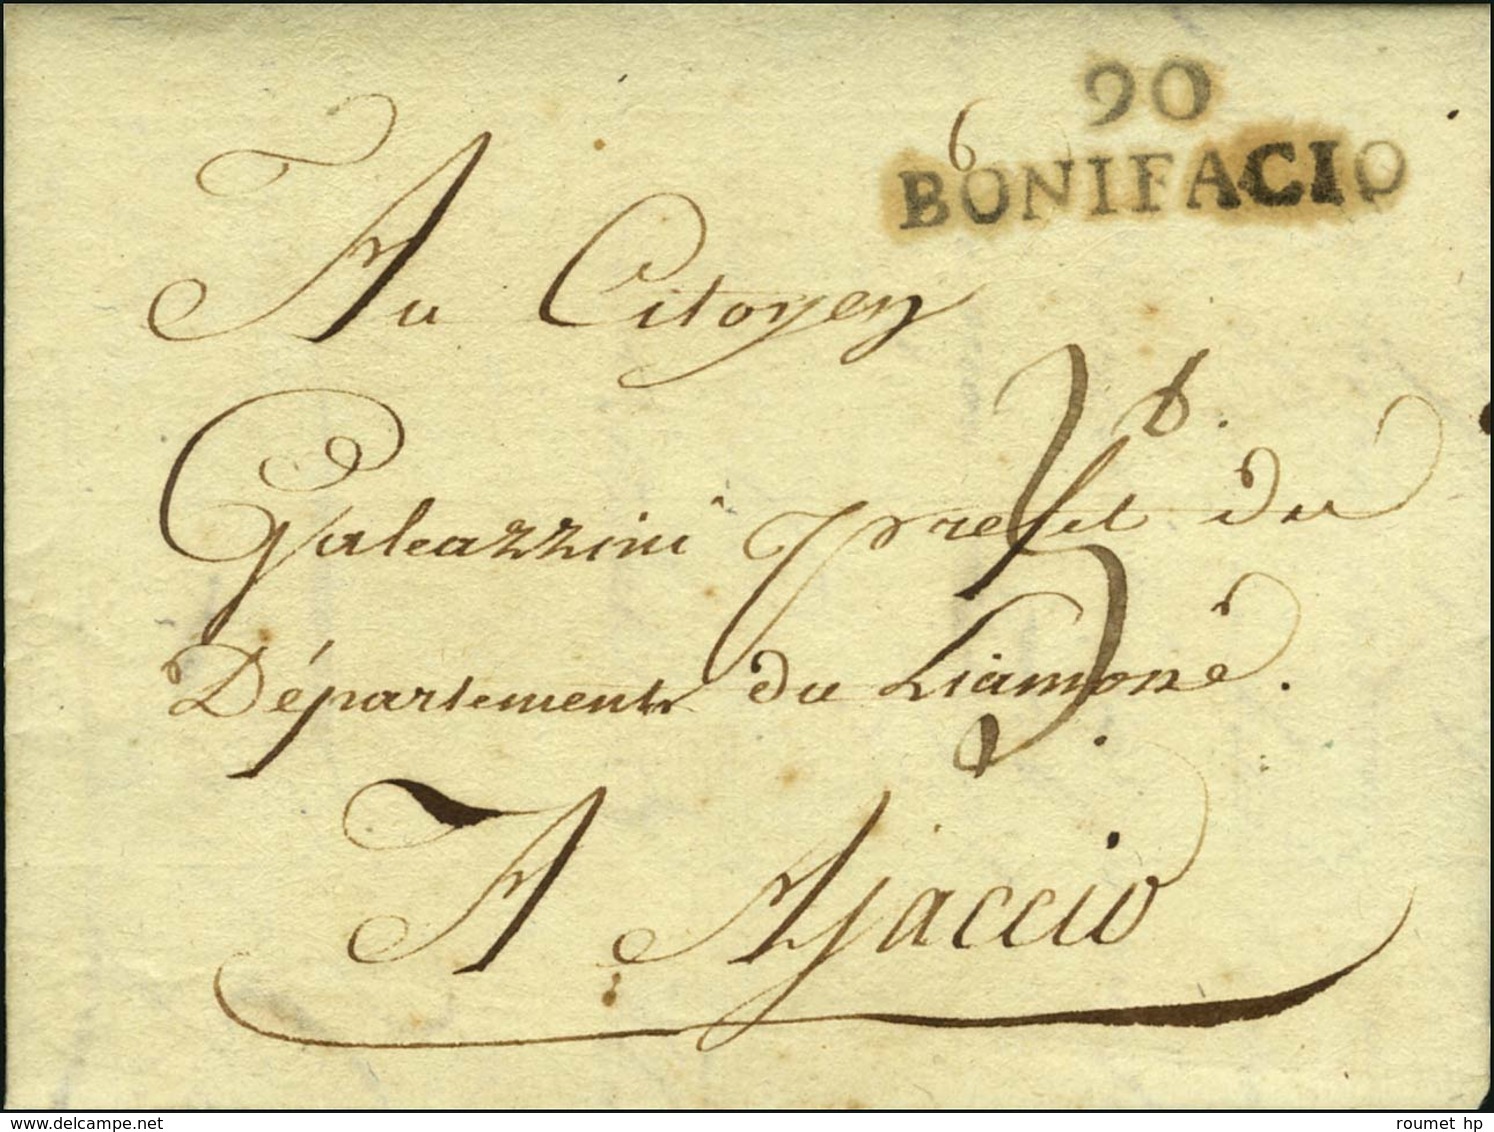 90
BONIFACIO
6
Au Citoyen
Galeazzini préfet du
Département du Liamone.
A Ajaccio
delcampe.net
roumet hp